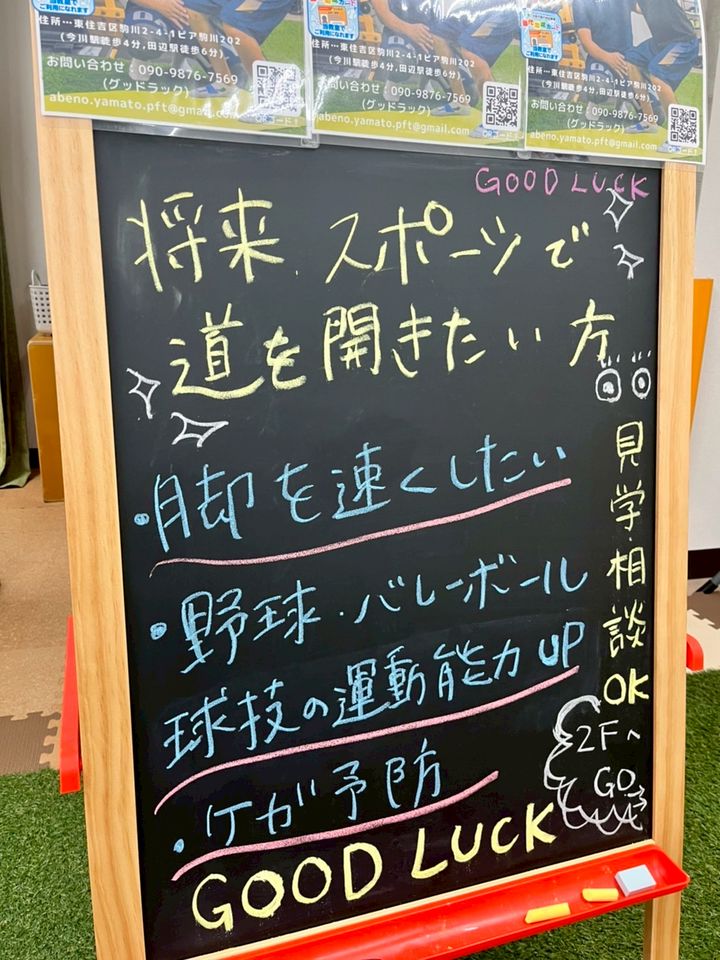 ご利用になれます
住所…東住吉区駒川2-4-1ピア駒川202
(今川駅徒歩4分,田辺駅徒歩6分)
お問い合わせ:090-9876-7569
(グッドラック)
abeno.yamato.pft@gmail.com
住所…東住吉区駒川2-4-1ピア駒川202
(今川駅徒歩4分,田辺駅徒歩6分)
お問い合わせ:090-9876-7569
(グッドラック)
abeno.yamato.pft@gmail.com
住所…東住吉区駒川2-4-1ピア駒川202
(今川駅徒歩4分,田辺駅徒歩6分)
お問い合わせ:090-9876-7569
(グッドラック)
abeno.yamato.pft@gmail.com
GOOD LUCK
将来、スポーツで
道を開きたい方
・脚を速くしたい
・野球・バレーボール
球技の運動能力UP
・ケガ予防
GOOD LUCK
見学・相談OK
2Fへ
GO